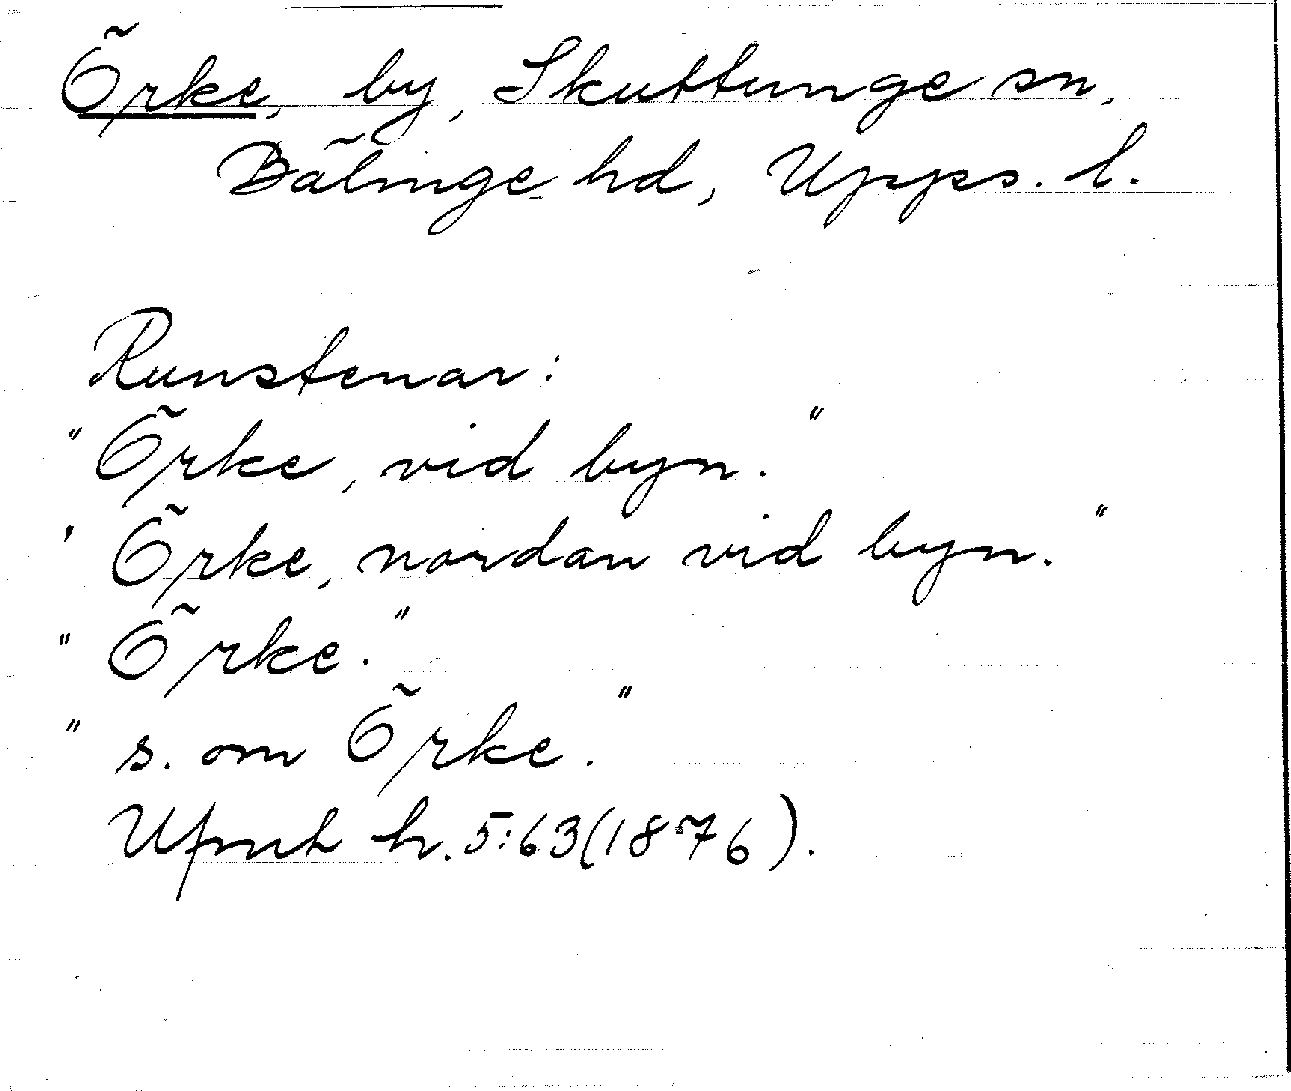 Örke, by, Skuttunge sn,
Bälinge hd, Upps. l.
Runstenar:
"Örke, vid byn."
"Örke, nordan vid byn."
"Örke."
"s. om Örke."
Ufmt h. 5:63 (1876).